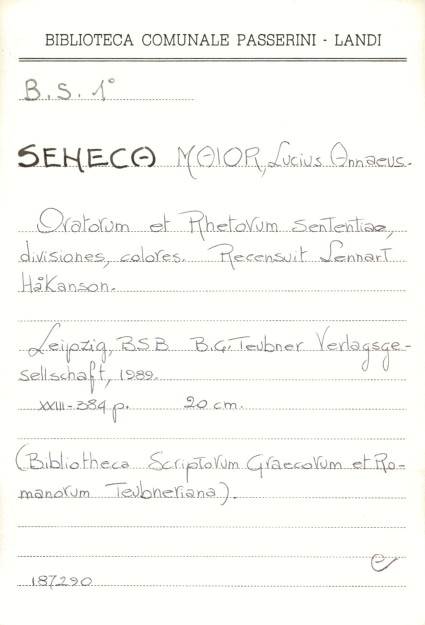 BIBLIOTECA COMUNALE PASSERINI - LANDI
B.S. 1°
SENECA MAIOR, Lucius Annaeus.
Oratorum et Rhetorum sententiae,
divisiones, colores. Recensuit Lennart
Håkanson.
Leipzig, BSB B.G. Teubner Verlagsge-
sellschaft, 1989.
XXIII-384 p. 20 cm.
(Bibliotheca Scriptorum Graecorum et Ro-
manorum Teubneriana).
187290